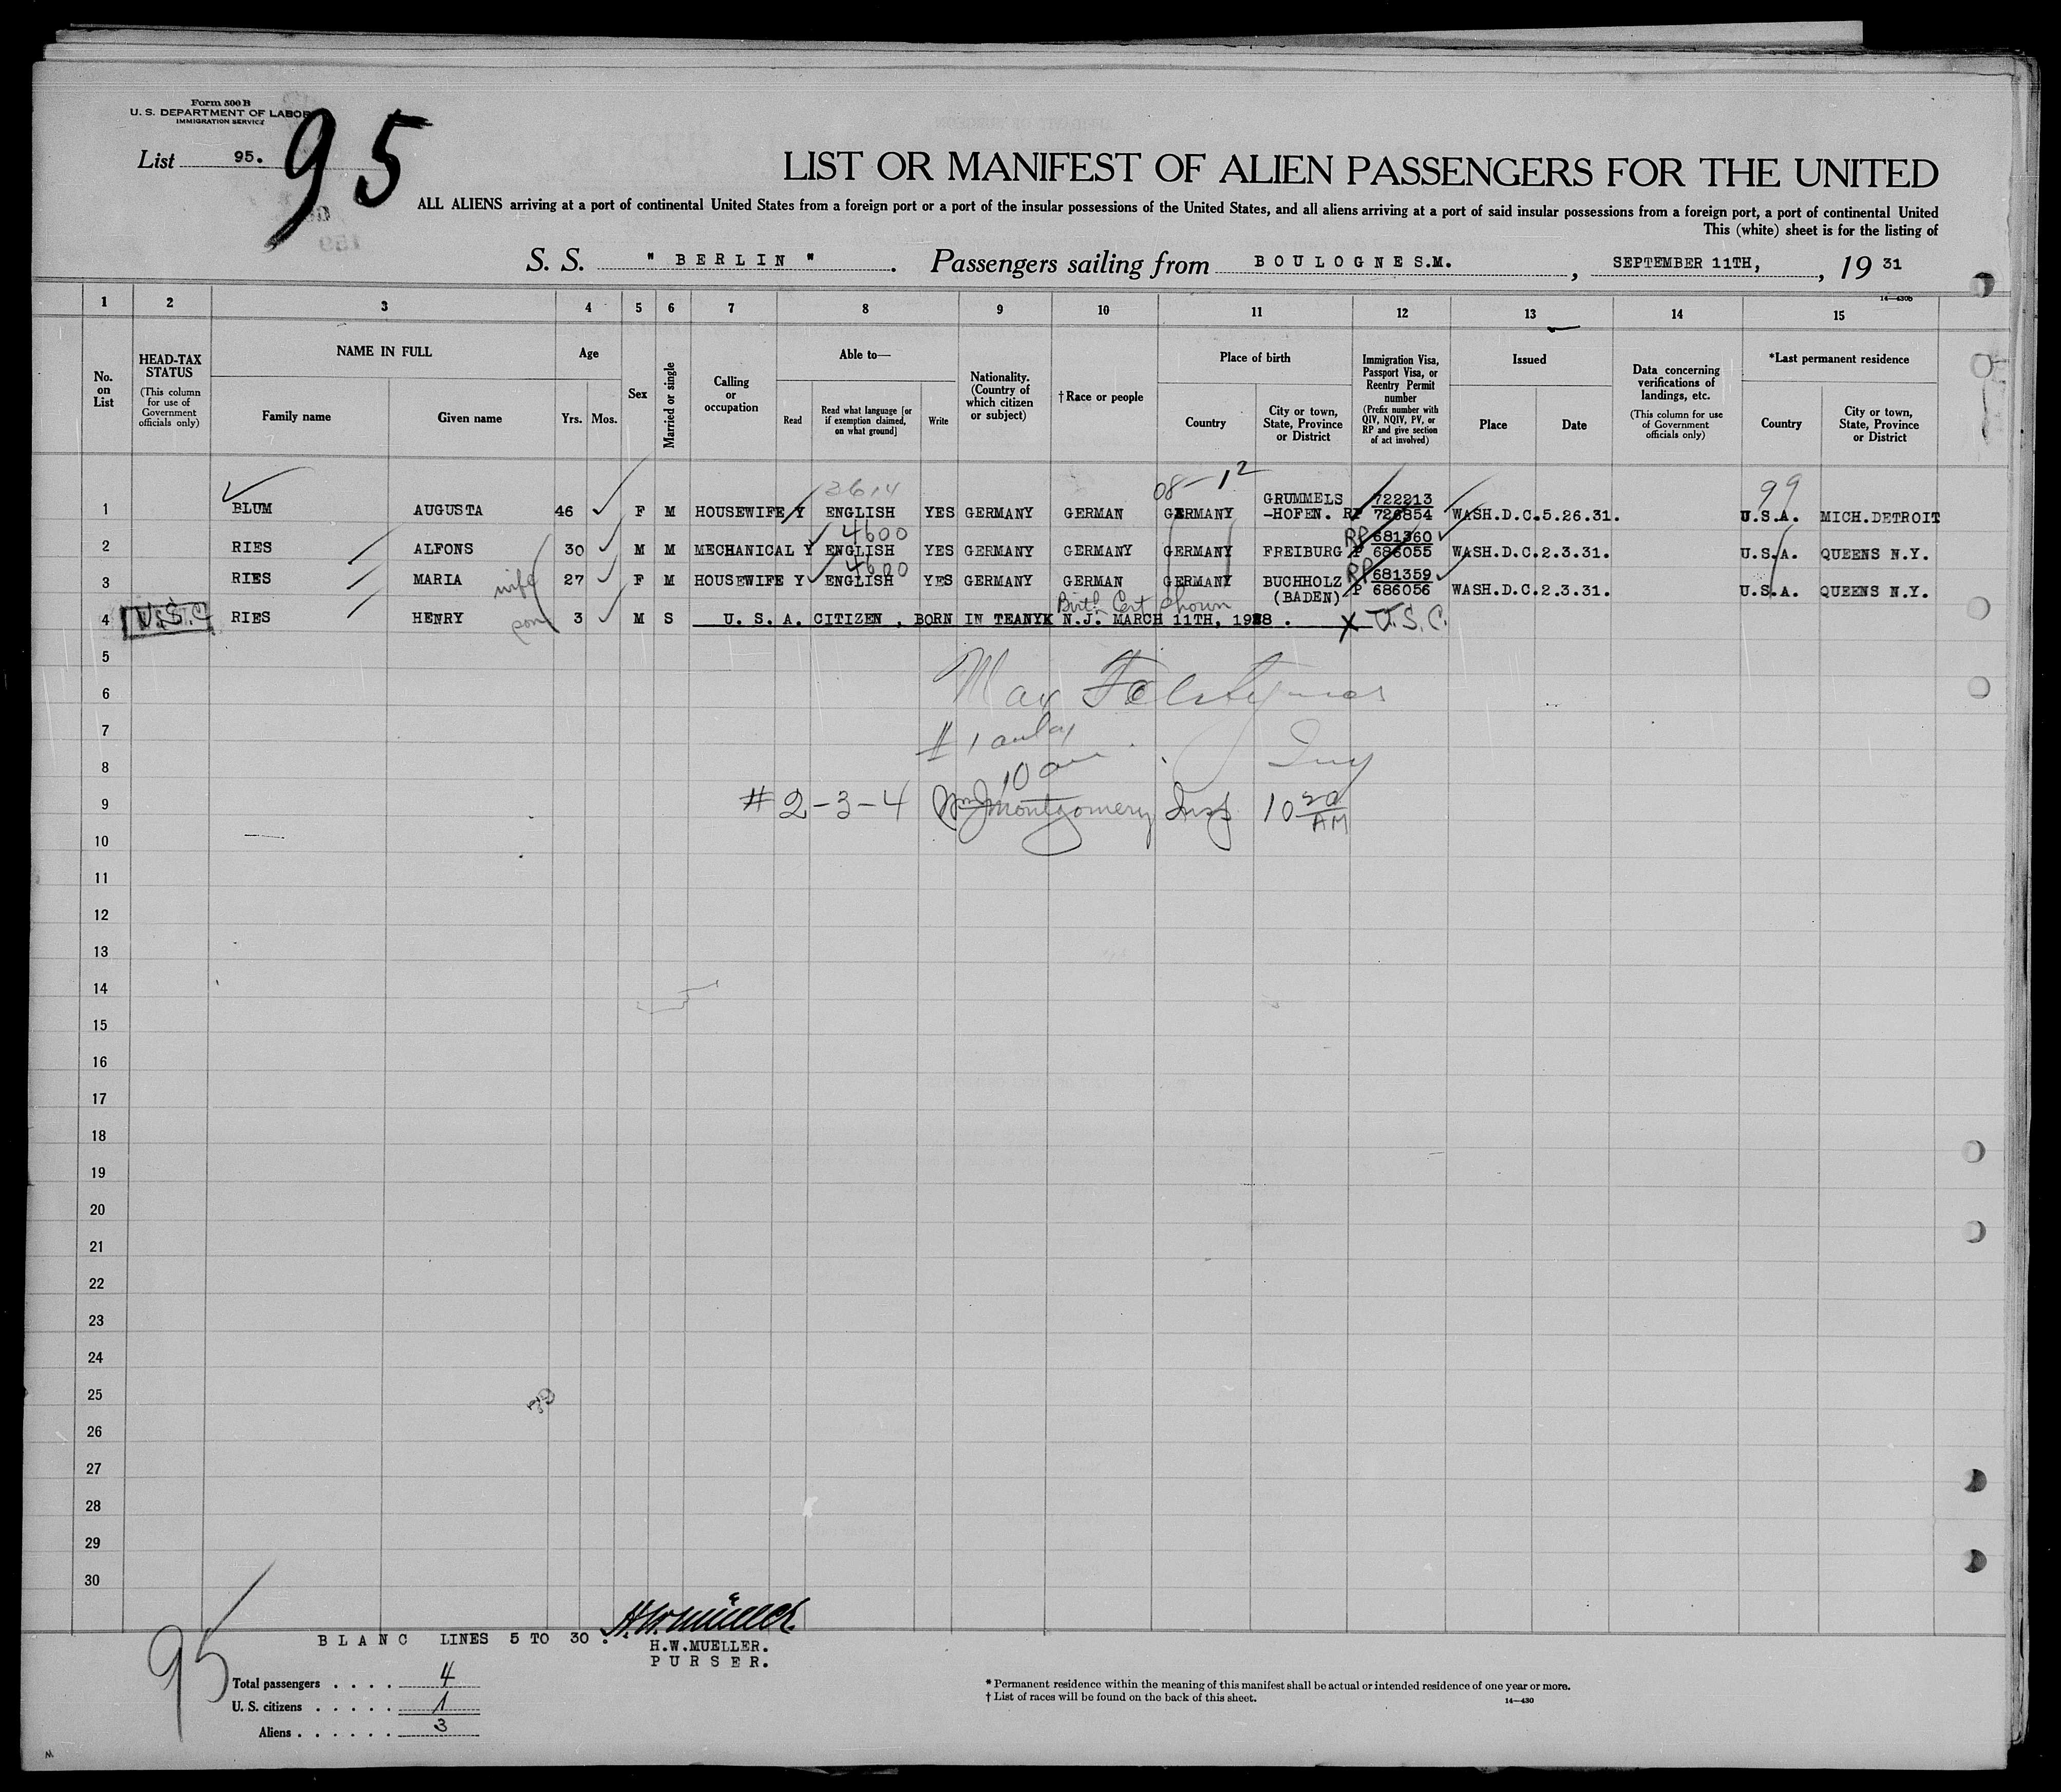 Form 500 B
U. S. DEPARTMENT OF LABOR
IMMIGRATION SERVICE
List 95.
95
LIST OR MANIFEST OF ALIEN PASSENGERS FOR THE UNITED
ALL ALIENS arriving at a port of continental United States from a foreign port or a port of the insular possessions of the United States, and all aliens arriving at a port of said insular possessions from a foreign port, a port of continental United
This (white) sheet is for the listing of
S. S. " BERLIN " . Passengers sailing from BOULOGNE S.M. , SEPTEMBER 11TH, , 19 31
14—430b
1 2 3 4 5 6 7 8 9 10 11 12 13 14 15
No. on List
HEAD-TAX STATUS
(This column for use of Government officials only)
NAME IN FULL
Family name
Given name
Age
Yrs. Mos.
Sex
Married or single
Calling or occupation
Able to—
Read
Read what language [or if exemption claimed, on what ground]
Write
Nationality. (Country of which citizen or subject)
†Race or people
Place of birth
Country
City or town, State, Province or District
Immigration Visa, Passport Visa, or Reentry Permit number
(Prefix number with QIV, NQIV, PV, or RP and give section of act involved)
Issued
Place
Date
Data concerning verifications of landings, etc.
(This column for use of Government officials only)
*Last permanent residence
Country
City or town, State, Province or District
3614 08-12 99
1 BLUM AUGUSTA 46 F M HOUSEWIFE Y ENGLISH YES GERMANY GERMAN GERMANY GRUMMELS-HOFEN. RP 722213 726854 WASH.D.C. 5.26.31. U.S.A. MICH.DETROIT
4600
2 RIES ALFONS 30 M M MECHANICAL Y ENGLISH YES GERMANY GERMANY GERMANY FREIBURG RP 681360 P 686055 WASH.D.C. 2.3.31. U.S.A. QUEENS N.Y.
4600
3 RIES MARIA wife 27 F M HOUSEWIFE Y ENGLISH YES GERMANY GERMAN GERMANY BUCHHOLZ (BADEN) RP 681359 P 686056 WASH.D.C. 2.3.31. U.S.A. QUEENS N.Y.
Birth Cert shown
4 U.S.C RIES HENRY son 3 M S U. S. A. CITIZEN , BORN IN TEANYK N.J. MARCH 11TH, 1928 . X U.S.C.
5
6 Max
7 # 1 only
8 10 am
9 # 2-3-4 Wm J Montgomery Insp 10 20 AM
10
11
12
13
14
15
16
17
18
19
20
21
22
23
24
25
26
27
28
29
30
95
BLANC LINES 5 TO 30 .
H.W. Müller
H.W.MUELLER.
PURSER.
Total passengers . . . . 4
U. S. citizens . . . . . 1
Aliens . . . . . . 3
* Permanent residence within the meaning of this manifest shall be actual or intended residence of one year or more.
† List of races will be found on the back of this sheet.
14—430